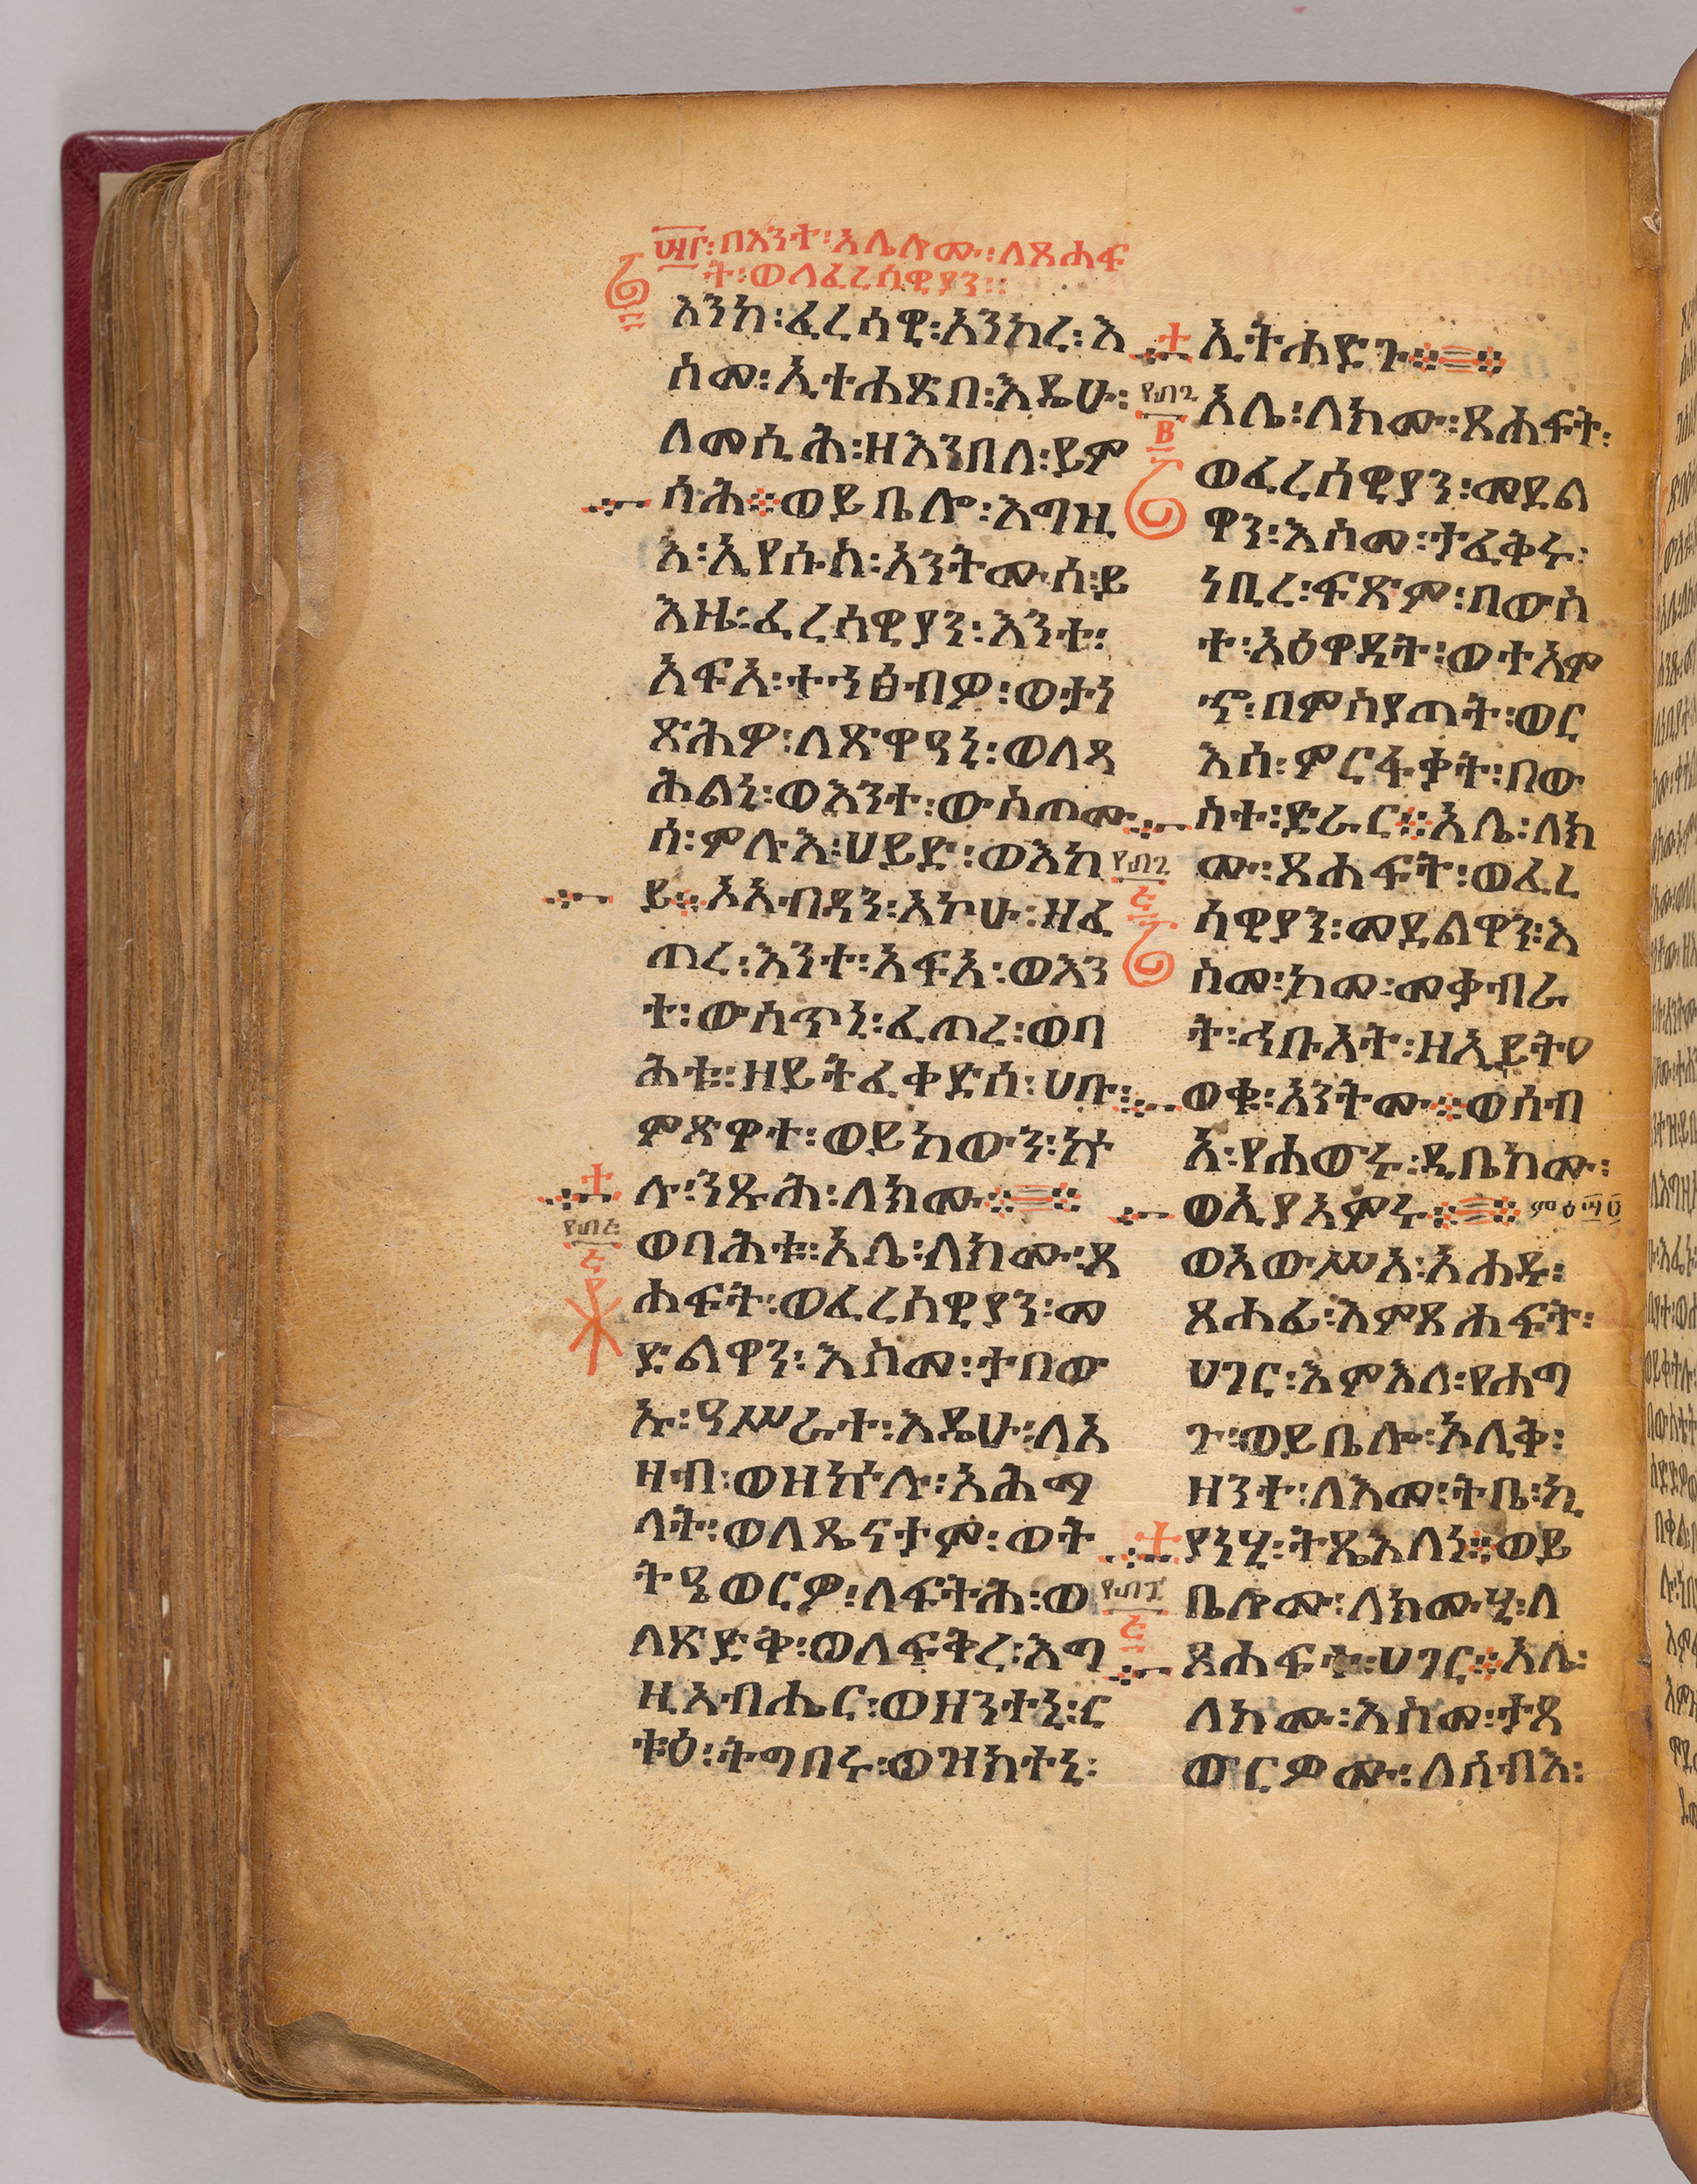 በእንተ፡ አሌሎሙ፡ ለጸሐፍ
ት፡ ወለፈረሳዊያን፡፡
እንከ፡ ፈረሳዊ፡ አንከረ፡ እ
ስመ፡ ኢተሐጽበ፡ እዴሁ፡
ለመሲሕ፡ ዘእንበለ፡ ይም
ሳሕ፨ ወይቤሎ፡ እግዚ
እ፡ ኢየሱስ፡ አንትሙሰ፡ ይ
እዜ፡ ፈረሳዊያን፡ እንተ፡
አፍአ፡ ተኀፅብዎ፡ ወታነ
ጽሕዎ፡ ለጽዋዓኒ፡ ወለጻ
ሕልኒ፡ ወእንተ፡ ውስጠሙ
ሰ፡ ምሉእ፡ ሀይድ፡ ወእከ
ይ፨ ኦአብዳን፡ አኮሁ፡ ዘፈ
ጠረ፡ እንተ፡ አፍአ፡ ወእን
ተ፡ ውስጥኒ፡ ፈጠረ፡ ወባ
ሕቱ፡ ዘይትፈቀድሰ፡ ሀቡ፡
ምጽዋተ፡ ወይከውን፡ ኵ
ሉ፡ ንጹሕ፡ ለክሙ፨
ወባሕቱ፡ አሌ፡ ለክሙ፡ ጸ
ሐፍት፡ ወፈረሳዊያን፡ መ
ድልዋን፡ እስመ፡ ታበው
ኡ፡ ዓሥራተ፡ እዴሁ፡ ለአ
ዘብ፡ ወዘኵሉ፡ አሕማ
ላት፡ ወለጼናታም፡ ወት
ትዔወርዎ፡ ለፍትሕ፡ ወ
ለጽድቅ፡ ወለፍቅረ፡ እግ
ዚአብሔር፡ ወዘንተኒ፡ ር
ቱዕ፡ ትግበሩ፡ ወዝክተኒ፡
ኢትሐድጉ፨
አሌ፡ ለክሙ፡ ጸሐፍት፡
ወፈረሳዊያን፡ መደል
ዋን፡ እስመ፡ ታፈቅሩ፡
ነቢረ፡ ፍጽም፡ በውስ
ተ፡ አዕዋዲት፡ ወተአም
ኆ፡ በምስያጣት፡ ወር
እሰ፡ ምርፋቃት፡ በው
ስተ፡ ድራር፨ አሌ፡ ለክ
ሙ፡ ጸሐፍት፡ ወፈረ
ሳዊያን፡ መደልዋን፡ እ
ስመ፡ ከመ፡ መቃብራ
ት፡ ኅቡኣት፡ ዘኢይትዐ
ወቁ፡ አንትሙ፨ ወሰብ
እ፡ የሐውሩ፡ ዲቤክሙ፡
ወኢያአምሩ፨
ወአውሥአ፡ አሐዱ፡
ጸሐፊ፡ እምጸሐፍት፡
ሀገር፡ እምእለ፡ የሐግ
ጉ፡ ወይቤሎ፡ ኦሊቅ፡
ዘንተ፡ ለእመ፡ ትቤ፡ ኪ
ያነሂ፡ ትጼእለነ፨ ወይ
ቤሎሙ፡ ለክሙሂ፡ ለ
ጸሐፍተ፡ ሀገር፨ አሌ፡
ለክሙ፡ እስመ፡ ታጸ
ውርዎሙ፡ ለሰብእ፡